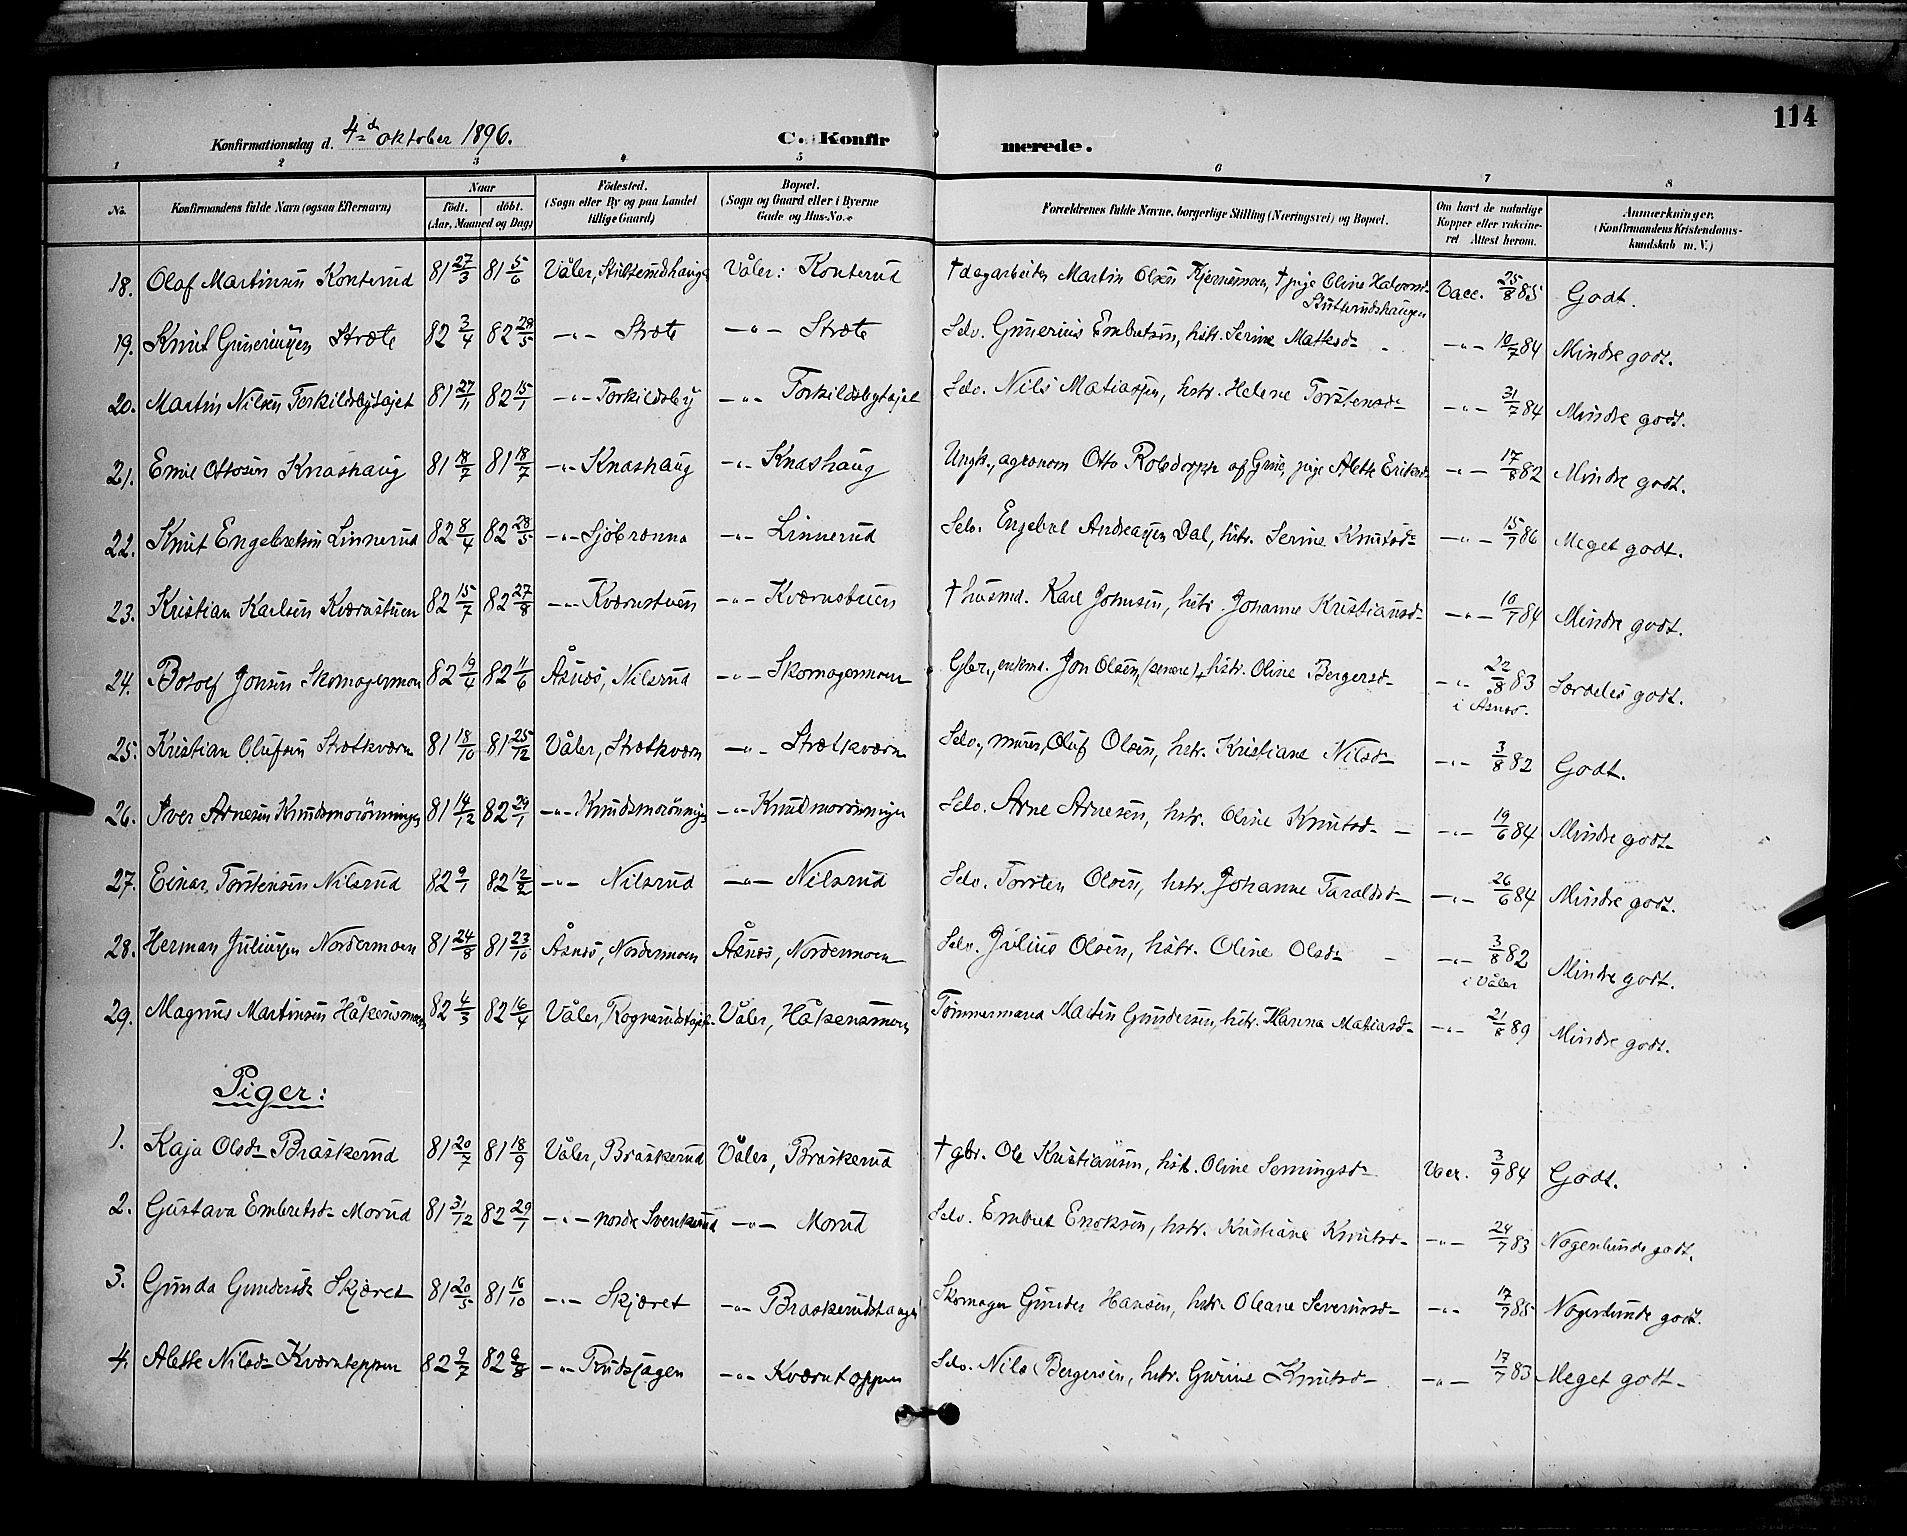 114
Konfirmationsdag d. 4de oktober 1896. C. Konfirmerede.
1 2 3 4 5 6 7 8
No. Konfirmandens fulde Navn (ogsaa Efternavn) Naar födt. döbt. (Aar, Maaned og Dag) Födested. (Sogn eller By og paa Landet tillige Gaard) Bopæl. (Sogn og Gaard eller i Byerne Gade og Hus-No.) Forældrenes fulde Navne, borgerlige Stilling (Næringsvei) og Bopæl. Om havt de naturlige Kopper eller vakcineret Attest herom. Anmærkninger. (Konfirmandens Kristendomskundskab m. V.)
18. Olaf Martinsen Konterud 81 27/3 81 5/6 Våler, Våler: Konterud † dagarbeider Martin Olsen † pige Oline Halvorsd- Stutterudshaugen Vacc. 25/8 85 Godt.
19. Knut Guneriussen Stræte 82 3/4 82 29/5 -"- Stræte -"- Stræte Selv. Gunerius Embretsen, hstr. Serine Mathsd- -"- 10/7 84 Mindre godt.
20. Martin Nilsen Torkildsbytajet 81 27/11 82 15/1 -"- Torkildsby -"- Torkildsbytajet Selv. Nils Matiassen, hstr. Helene Torstensd- -"- 31/7 84 Mindre godt.
21. Emil Ottosen Knashaug 81 18/7 81 18/7 -"- Knashaug -"- Knashaug Ungk., agronom Otto af Grue, pige Alette Eriksd- -"- 17/8 82 Mindre godt.
22. Knut Engebretsen Linnerud 82 8/4 82 28/5 -"- Sjöbrænna -"- Linnerud Selv. Engebret Andreassen Dal, hstr. Serine Knutsd- -"- 15/7 86 Meget godt.
23. Kristian Karlsen Kværnstuen 82 15/7 82 27/8 -"- Kværnstuen -"- Kværnstuen † husmd. Karl Johnsen, hstr. Johanne Kristiansd- -"- 10/7 84 Mindre godt.
24. Botolf Jonsen Skomagermoen 82 19/4 82 11/6 Åsnes, Nilsrud -"- Skomagermoen Gbr., enkmd. Jon Olsen, (senere) † hstr. Oline Bergersd- -"- 22/8 83 i Åsnes. Særdeles godt.
25. Kristian Olufsen Strætkværn 81 18/10 81 25/12 Våler, Strætkværn -"- Strætkværn Selv., murer, Oluf Olsen, hstr. Kristiane Nilsd- -"- 3/8 82 Godt.
26. Iver Arnesen Knudsmorönningen 81 14/12 82 29/1 -"- Knudsmorönningen -"- Knudsmorönningen Selv. Arne Arnesen, hstr. Oline Knutsd- -"- 19/6 84 Mindre godt.
27. Einar Torstensen Nilsrud 82 9/1 82 12/2 -"- Nilsrud -"- Nilsrud Selv. Torsten Olsen, hstr. Johanne Taraldsd- -"- 26/6 84 Mindre godt.
28. Herman Juliussen Nordermoen 81 24/8 81 23/10 Åsnes, Nordermoen Åsnes, Nordermoen Selv. Julius Olsen, hstr. Oline Olsd- -"- 3/8 82 i Våler Mindre godt.
29. Magnus Martinsen Håkensmoen 82 4/3 82 16/4 Våler, Rognerudstajet Våler, Håkensmoen Tömmermand Martin Gundersen, hstr. Hanna Matiasd- -"- 21/8 89 Mindre godt.
Piger:
1. Kaja Olsd- Braskerud 81 20/7 81 18/9 Våler, Braskerud Våler, Braskerud † gbr. Ole Kristiansen, hst. Oline Semingsd- Vacc. 3/9 84 Godt.
2. Gustava Embretsd- Morud 81 31/12 82 29/1 -"- nordre Svenkerud -"- Morud Selv. Embret Enoksen, hstr. Kristiane Knutsd- -"- 24/7 83 Nogenlunde godt.
3. Gunda Gundersd- Skjæret 81 20/5 81 16/10 -"- Skjæret -"- Braskerudshaugen Skomager Gunder Hansen, hstr. Oleane Severinsd- -"- 17/7 85 Nogenlunde godt.
4. Alette Nilsd- Kværntoppen 82 9/7 82 6/8 -"- -"- Kværntoppen Selv. Nils Bergersen, hstr. Gurine Knutsd- -"- 17/7 83 Meget godt-